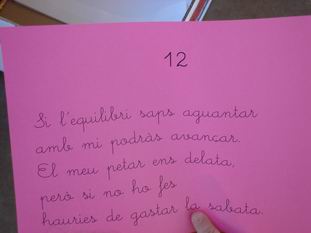 12
Si l'equilibri saps aguantar
amb mi podràs avançar.
El meu petar ens delata,
però si no ho fes
hauries de gastar la sabata.